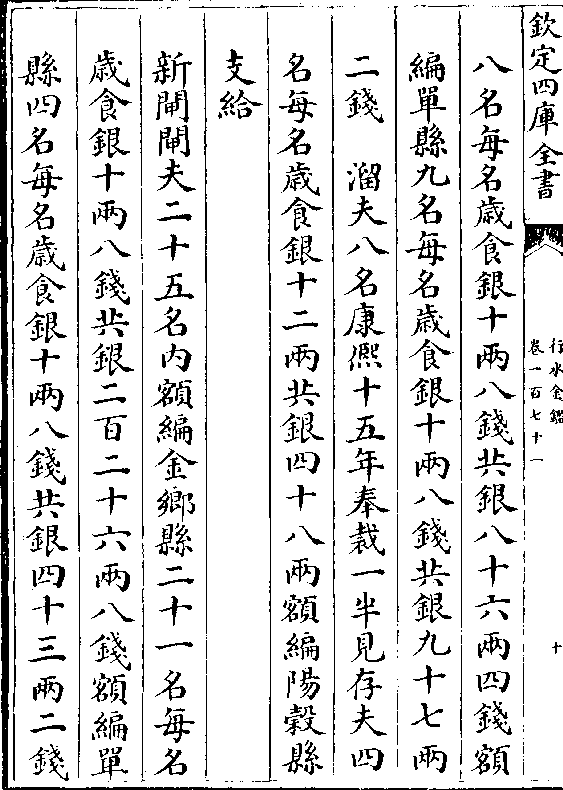 欽定四庫全書
行水金鑑
卷一百七十一
十
八名每名歲食銀十兩八錢共銀八十六兩四錢額
編單縣九名每名歲食銀十兩八錢共銀九十七兩
二錢　溜夫八名康熈十五年奉裁一半見存夫四
名每名歲食銀十二兩共銀四十八兩額編陽穀縣
支給
新閘閘夫二十五名内額編金鄉縣二十一名每名
歲食銀十兩八錢共銀二百二十六兩八錢額編單
縣四名每名歲食銀十兩八錢共銀四十三兩二錢